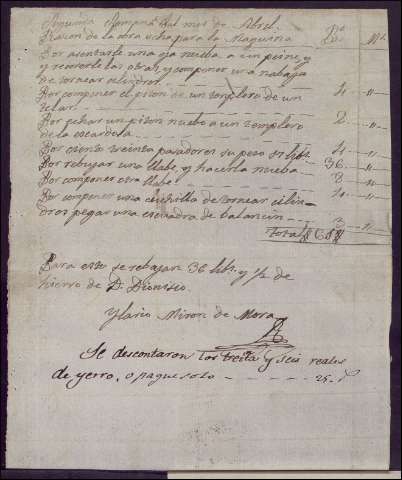 Segunda semana del mes de Abril
Razon de la obra echa para la Maquina Rs Ms
Por asentarle una oja nueba a un peine, y
y recorrerle las otras, y componer una nabaja
de tornear cilindros 4 "
Por componer el pison de un templero de un
telar 2 "
Por hechar un pison nuebo a un templero
de la escardesa 4 "
Por ciento treinta paradores su peso 51 libs 36 "
Por rebajar una llabe, y hacerla nueba 3 "
Por componer otra llabe 4 "
Por componer una cuchilla de tornear cilin-
dros pegar una escuadra de balancin 3 "
Total
Para esto se rebajan 36 libs y 1/2 de
hierro de Dn Dionisio.
Ylario Miron de Mora
Se descontaron los treita y seis reales
de yerro, o pague solo 25